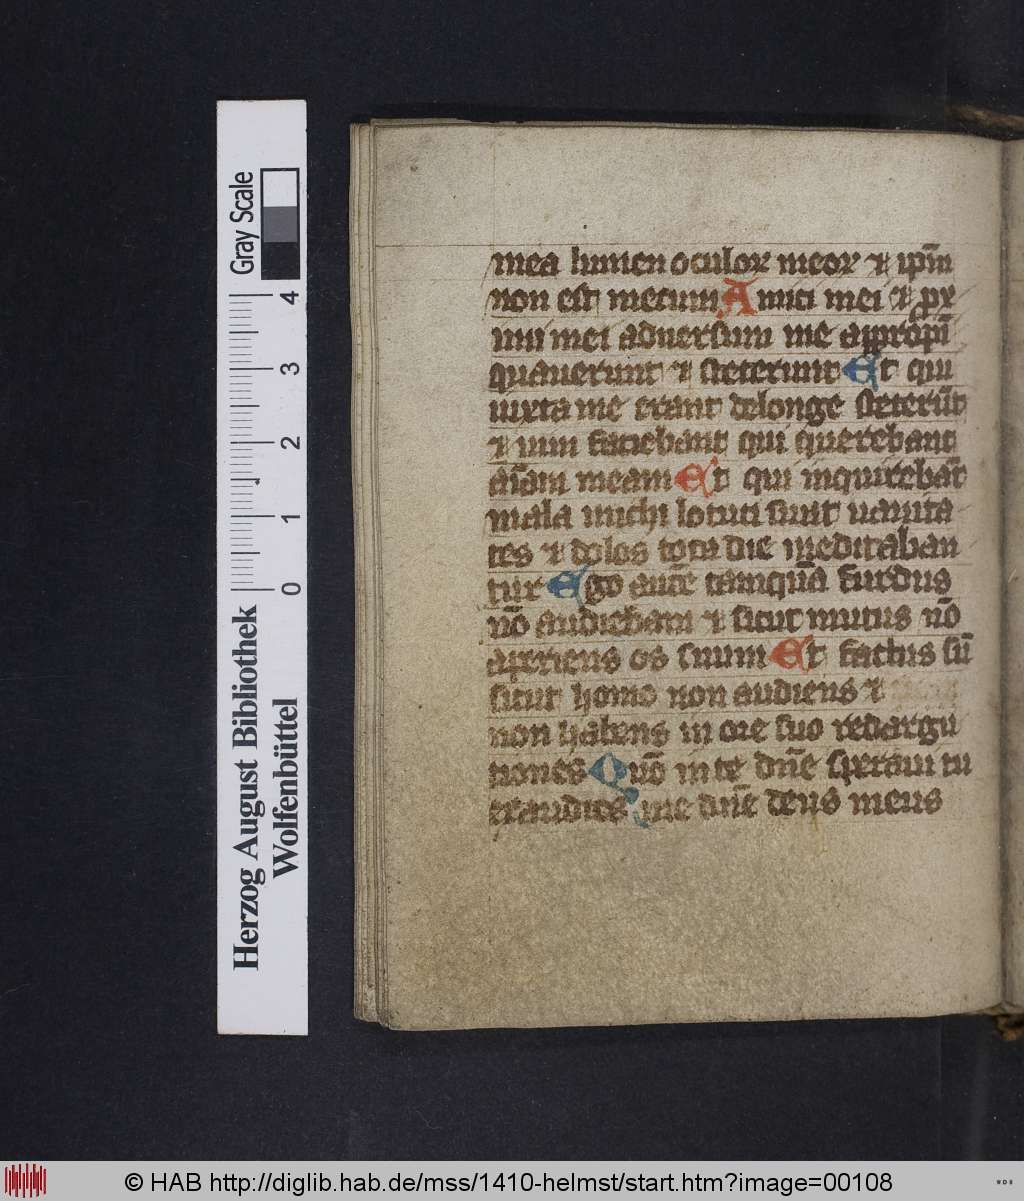 mea lumen oculoꝝ meoꝝ ⁊ ip̄m
non est mecum Amici mei ⁊ ꝓx
imi mei aduersum me appropī
quauerunt ⁊ steterunt Et qui
iuxta me erant delonge steterūt
⁊ uim faciebant qui querebant
aīam meam Et qui inquirebāt
mala michi locuti sunt uanita
tes ⁊ dolos tota die meditaban
tur Ego autē tamquā surdus
nō audiebam ⁊ sicut mutus nō
aperiens os suum Et factus sū
sicut homo non audiens ⁊
non habens in ore suo redargu
tiones Quō in te dn̄e speraui tu
exaudies me dn̄e deus meus
Gray Scale
4
3
2
1
0
Herzog August Bibliothek
Wolfenbüttel
© HAB http://diglib.hab.de/mss/1410-helmst/start.htm?image=00108